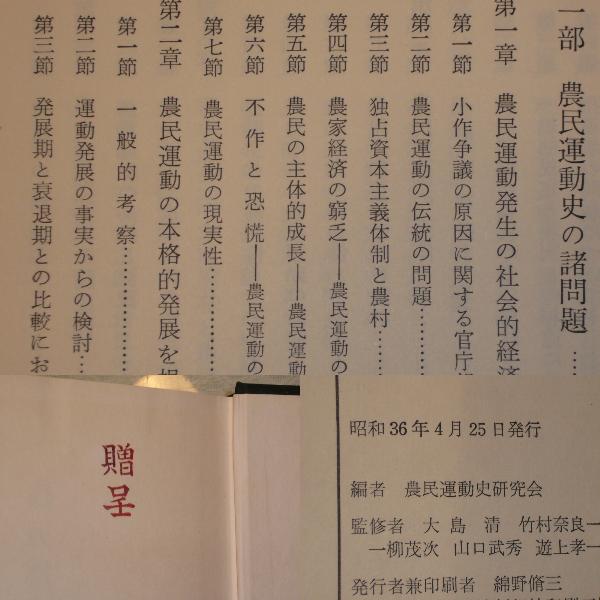 一部 農民運動史の諸問題……
第一章 農民運動発生の社会的経済
第一節 小作争議の原因に関する官庁
第二節 農民運動の伝統の問題………
第三節 独占資本主義体制と農村……
第四節 農家経済の窮乏――農民運動の
第五節 農民の主体的成長――農民運動
第六節 不作と恐慌――農民運動の
第七節 農民運動の現実性…………
第二章 農民運動の本格的発展を
第一節 一般的考察……………
第二節 運動発展の事実からの検討……
第三節 発展期と衰退期との比較にお
贈呈
昭和36年4月25日発行
編者 農民運動史研究会
監修者 大島清 竹村奈良一
一柳茂次 山口武秀 遊上孝一
発行者兼印刷者 綿野脩三